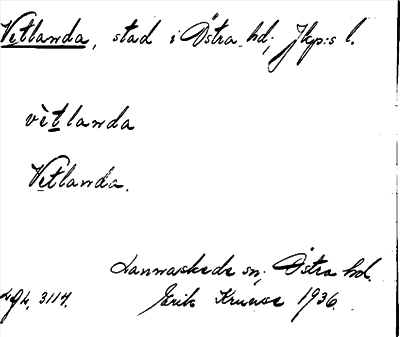 Vetlanda, stad i Östra hd; Jkp:s l.
vètlanda
Vetlanda.
Lannaskede sn; Östra hd.
Lgh. 3114. Erik Kruuse 1936.